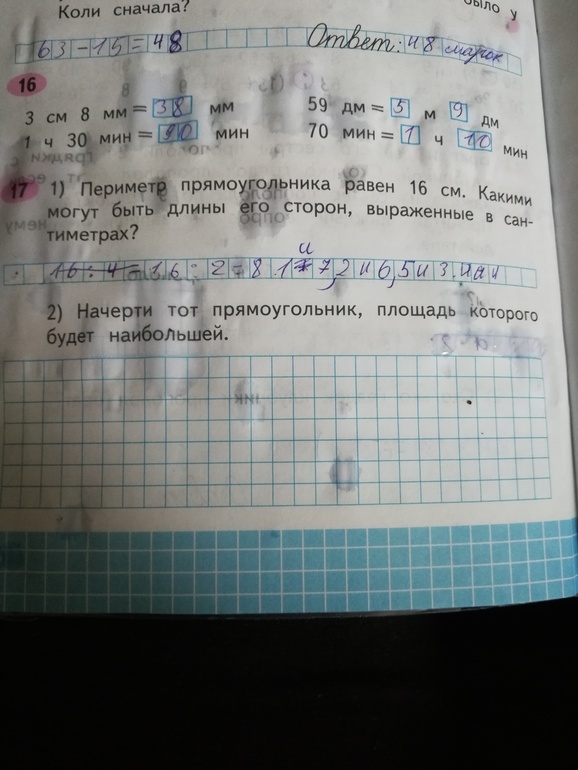 Коли сначала?
было у
63-15=48 Ответ: 48 марок
16
3 см 8 мм = 38 мм 59 дм = 5 м 9 дм
1 ч 30 мин = 90 мин 70 мин = 1 ч 10 мин
17 1) Периметр прямоугольника равен 16 см. Какими
могут быть длины его сторон, выраженные в сан-
тиметрах?
и
16:4=16:2=8 1 7, 2 и 6, 5 и 3, 4 и 4
2) Начерти тот прямоугольник, площадь которого
будет наибольшей.